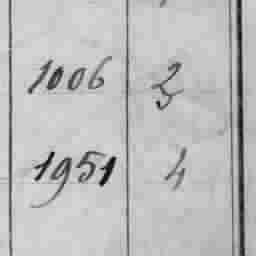 1006 3
1951 4